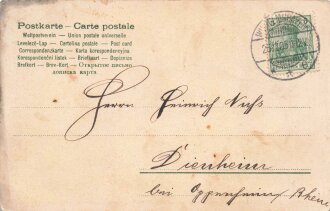 Postkarte – Carte postale
Weltpostverein – Union postale universelle
Levelező-Lap – Cartolina postale – Post card
Correspondenzkarte – Karta korespondencyjna
Korespondenční lístek – Briefkaart – Dopisnica
Brefkort – Brev-Kort – Открытое письмо
дописна карта
Herrn Heinrich
Dienheim
bei Oppenheim / Rhein